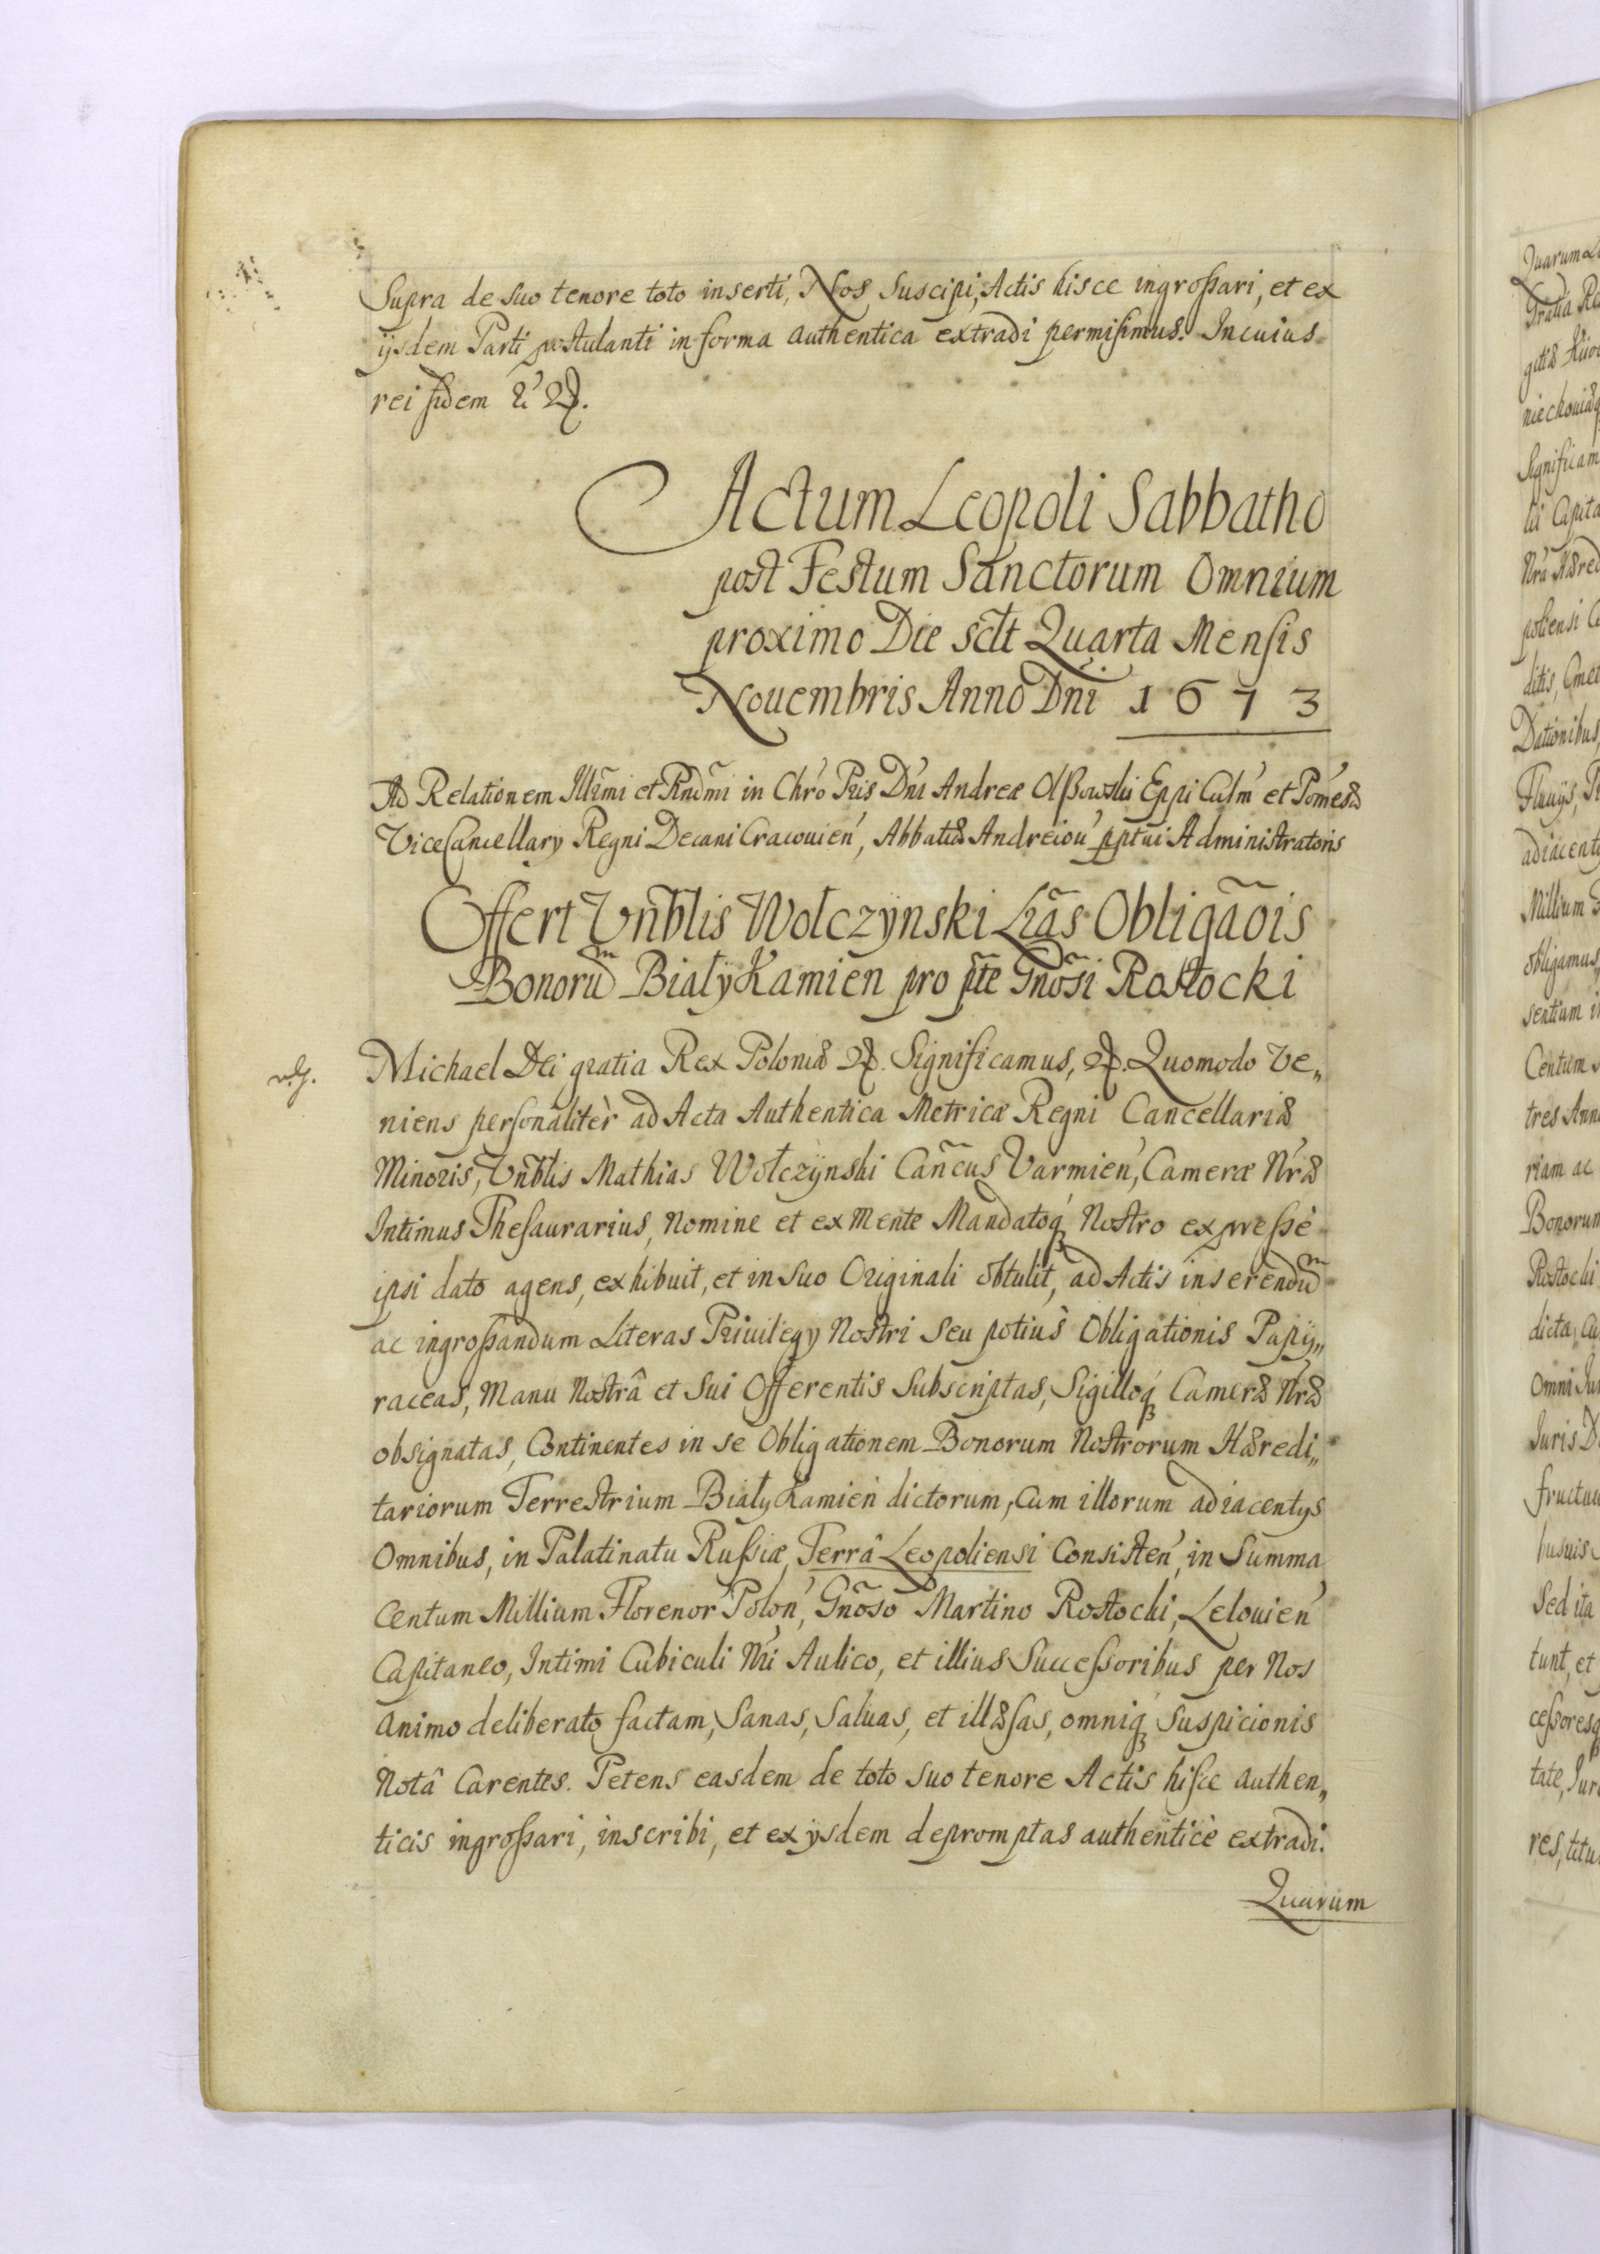 Supra de suo tenore toto inserti, Nos Suscipi, Actis hisce ingrossari, et ex
ijsdem Parti postulanti in forma authentica extradi permisimus. In cuius
rei fidem
Actum Leopoli Sabbatho
post Festum Sanctorum Omnium
proximo Die sclt Quarta Mensis
Nouembris Anno Dni 1673
Ad Relationem Illrmi et Rndmi in Chro Pris Dni Andreæ Olszowski Eppi Culm et Pomesæ
ViceCancellary Regni Decani Cracouien, Abbatiæ Andreiou pptui Administratoris
Offert Vnblis Wołczÿnski Lras Obligaois
Bonorum BiałyKamien pro pte Gnosi Rostocki
Michael Dei gratia Rex Poloniæ Significamus, Quomodo Ve„
niens personalitèr ad Acta Authentica Metricæ Regni Cancellariæ
Minoris, Vnblis Mathias Wołczÿnski Cancus Varmien, Cameræ Nræ
Intimus Thesaurarius, nomine et ex mente Mandatoq Nostro expressè
ipsi dato agens, exhibuit, et in suo Originali obtulit, ad Actis inserendum
ac ingrossandum Literas Priuilegy Nostri seu potius Obligationis Papÿ„
raceas, Manu Nostrâ et Sui Offerentis Subscriptas, Sigilloq Cameræ Nræ
obsignatas, Continentes in se Obligationem Bonorum Nostrorum Hæredi„
tariorum Terrestrium BiałyKamień dictorum, Cum illorum adiacentys
Omnibus, in Palatinatu Russiæ, Terrâ Leopoliensi Consisten, in Summa
Centum Millium Florenor Polon, Gnoso Martino Rostocki, Lelouien
Capitaneo, Intimi Cubiculi Nri Aulico, et illius Successoribus per Nos
animo deliberato factam, Sanas, Saluas, et illæsas, omniq Suspicionis
Notâ Carentes. Petens easdem de toto suo tenore Actis hisce authen„
ticis ingrossari, inscribi, et ex ÿsdem depromptas authenticè extradi.
Quarum